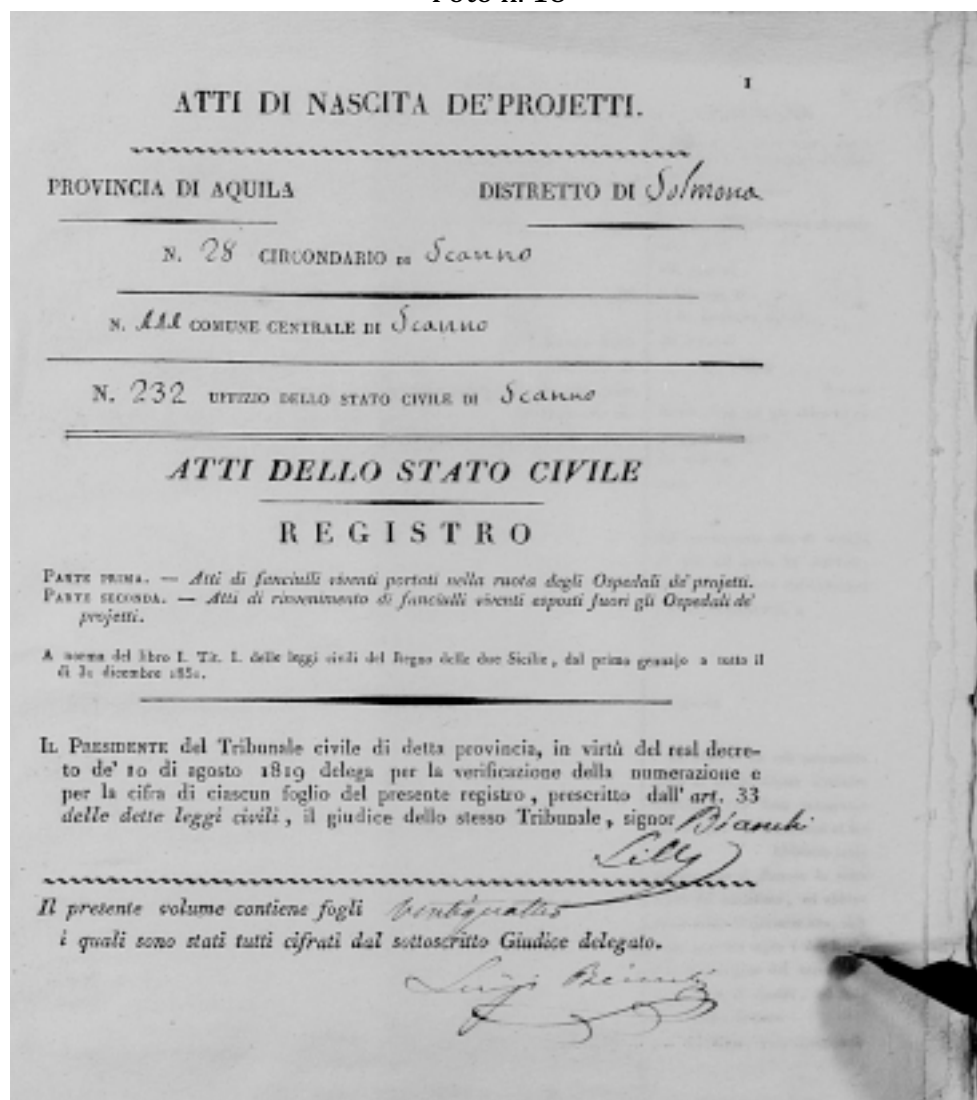 Foto n. 18
1
ATTI DI NASCITA DE'PROJETTI.
PROVINCIA DI AQUILA DISTRETTO DI Solmona
N. 28 CIRCONDARIO DI Scanno
N. COMUNE CENTRALE DI Scanno
N. 232 UFFIZIO DELLO STATO CIVILE DI Scanno
ATTI DELLO STATO CIVILE
REGISTRO
PARTE PRIMA. — Atti di fanciulli viventi portati nella ruota degli Ospedali de' projetti.
PARTE SECONDA. — Atti di rinvenimento di fanciulli viventi esposti fuori gli Ospedali de'
projetti.
A norma del libro I. Tit. I. delle leggi civili del Regno delle due Sicilie, dal primo gennajo a tutto il
dì 31 dicembre
IL PRESIDENTE del Tribunale civile di detta provincia, in virtù del real decre-
to de' 10 di agosto 1819 delega per la verificazione della numerazione e
per la cifra di ciascun foglio del presente registro, prescritto dall' art. 33
delle dette leggi civili, il giudice dello stesso Tribunale, signor Bianchi
Il presente volume contiene fogli ventiquattro
i quali sono stati tutti cifrati dal sottoscritto Giudice delegato.
Luigi Bianchi